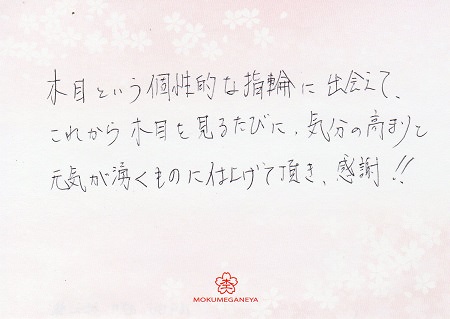 木目という個性的な指輪に出会えて、
これから木目を見るたびに、気分の高まりと
元気が湧くものに仕上げて頂き、感謝!!
MOKUMEGANEYA